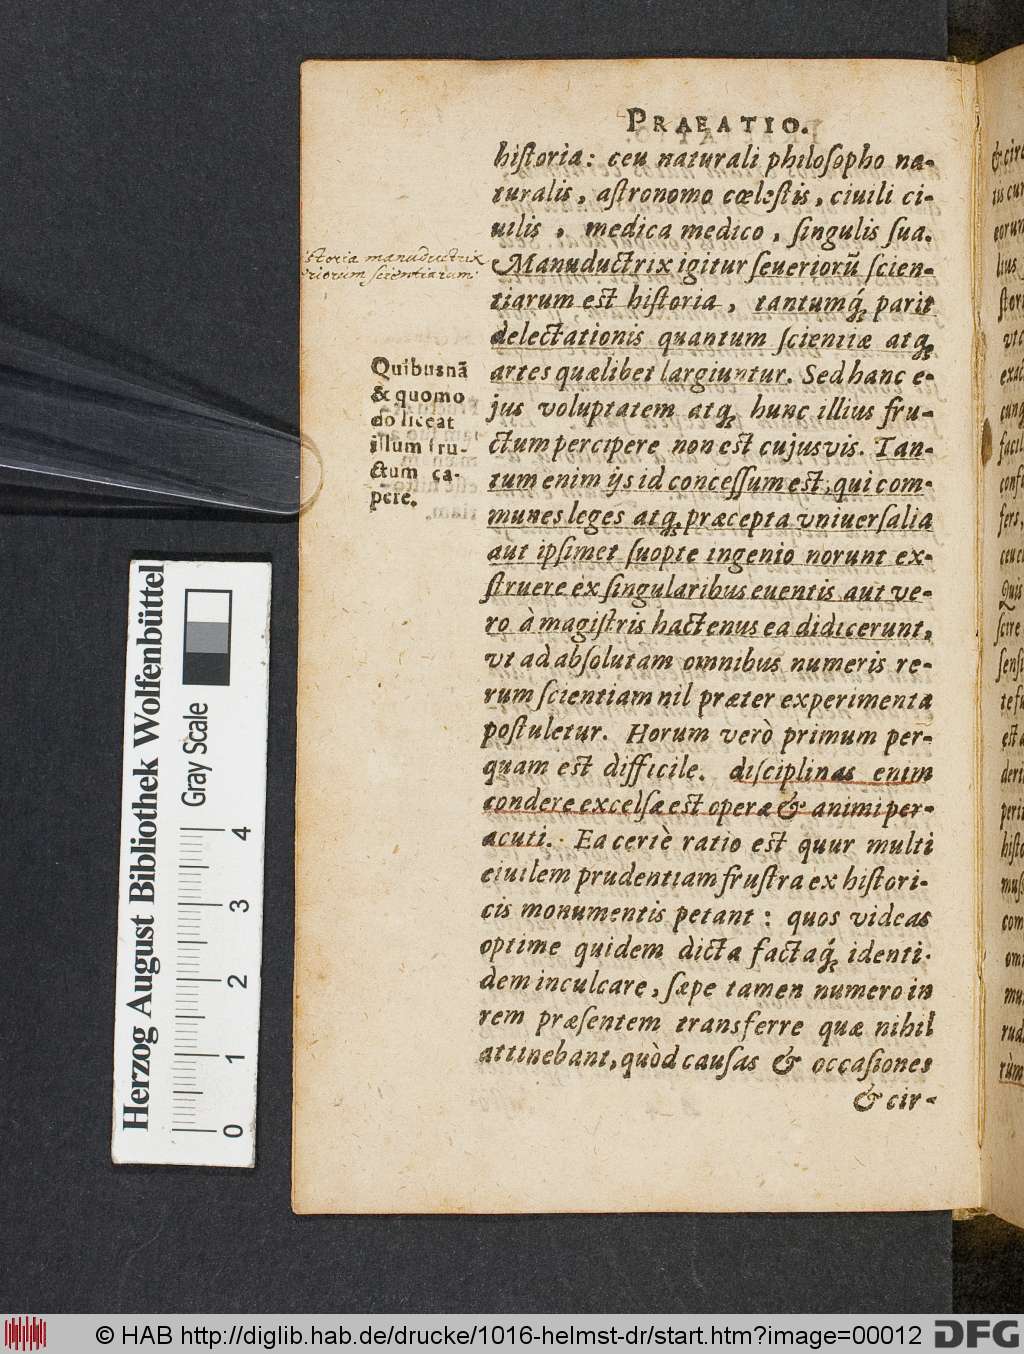 PRÆFATIO.
historia: ceu naturali philosopho na-
turalis, astronomo cœlestis, ciuili ci-
uilis, medica medico, singulis sua.
Manuductrix igitur seueriorũ scien-
tiarum est historia, tantumq́; parit
delectationis quantum scientiæ atq;
artes quælibet largiuntur. Sed hanc e-
jus voluptatem atq; hunc illius fru-
ctum percipere non est cujusvis. Tan-
tum enim ijs id concessum est, qui com-
munes leges atq; præcepta vniuersalia
aut ipsimet suopte ingenio norunt ex-
struere ex singularibus euentis aut ve-
ro à magistris hactenus ea didicerunt,
vt ad absolutam omnibus numeris re-
rum scientiam nil præter experimenta
postuletur. Horum verò primum per-
quam est difficile. disciplinas enim
condere excelsæ est operæ & animi per-
acuti. Ea certè ratio est quur multi
ciuilem prudentiam frustra ex histori-
cis monumentis petant: quos videas
optime quidem dicta factaq́; identi-
dem inculcare, sæpe tamen numero in
rem præsentem transferre quæ nihil
attinebant, quòd causas & occasiones
& cir-
storia manuductrix
riorum scientiarum
Quibusnã
& quomo
do liceat
illum fru-
ctum ca-
pere.
Herzog August Bibliothek Wolfenbüttel
Gray Scale
0 1 2 3 4
© HAB http://diglib.hab.de/drucke/1016-helmst-dr/start.htm?image=00012
DFG